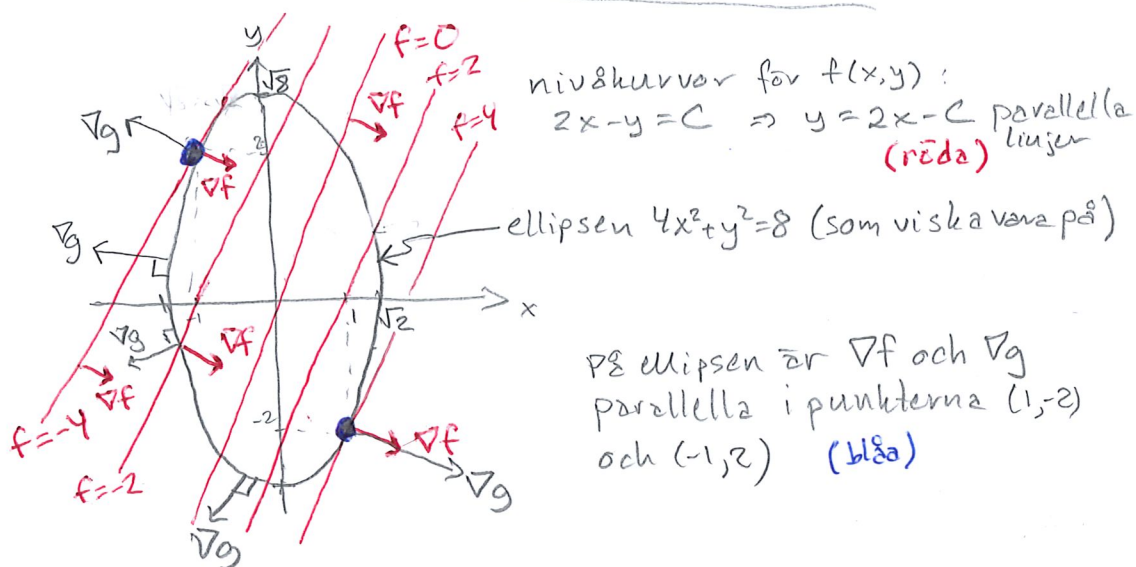 y
√8
f=0
f=2
f=4
∇f
∇g
2
∇f
∇g
-1
1
√2
x
∇g
∇f
∇f
f=-4
-2
∇f
∇g
f=-2
∇g
nivåkurvor för f(x,y) :
2x-y=C ⇒ y=2x-C parallella linjer
(röda)
ellipsen 4x²+y²=8 (som vi ska vara på)
på ellipsen är ∇f och ∇g
parallella i punkterna (1,-2)
och (-1,2) (blåa)